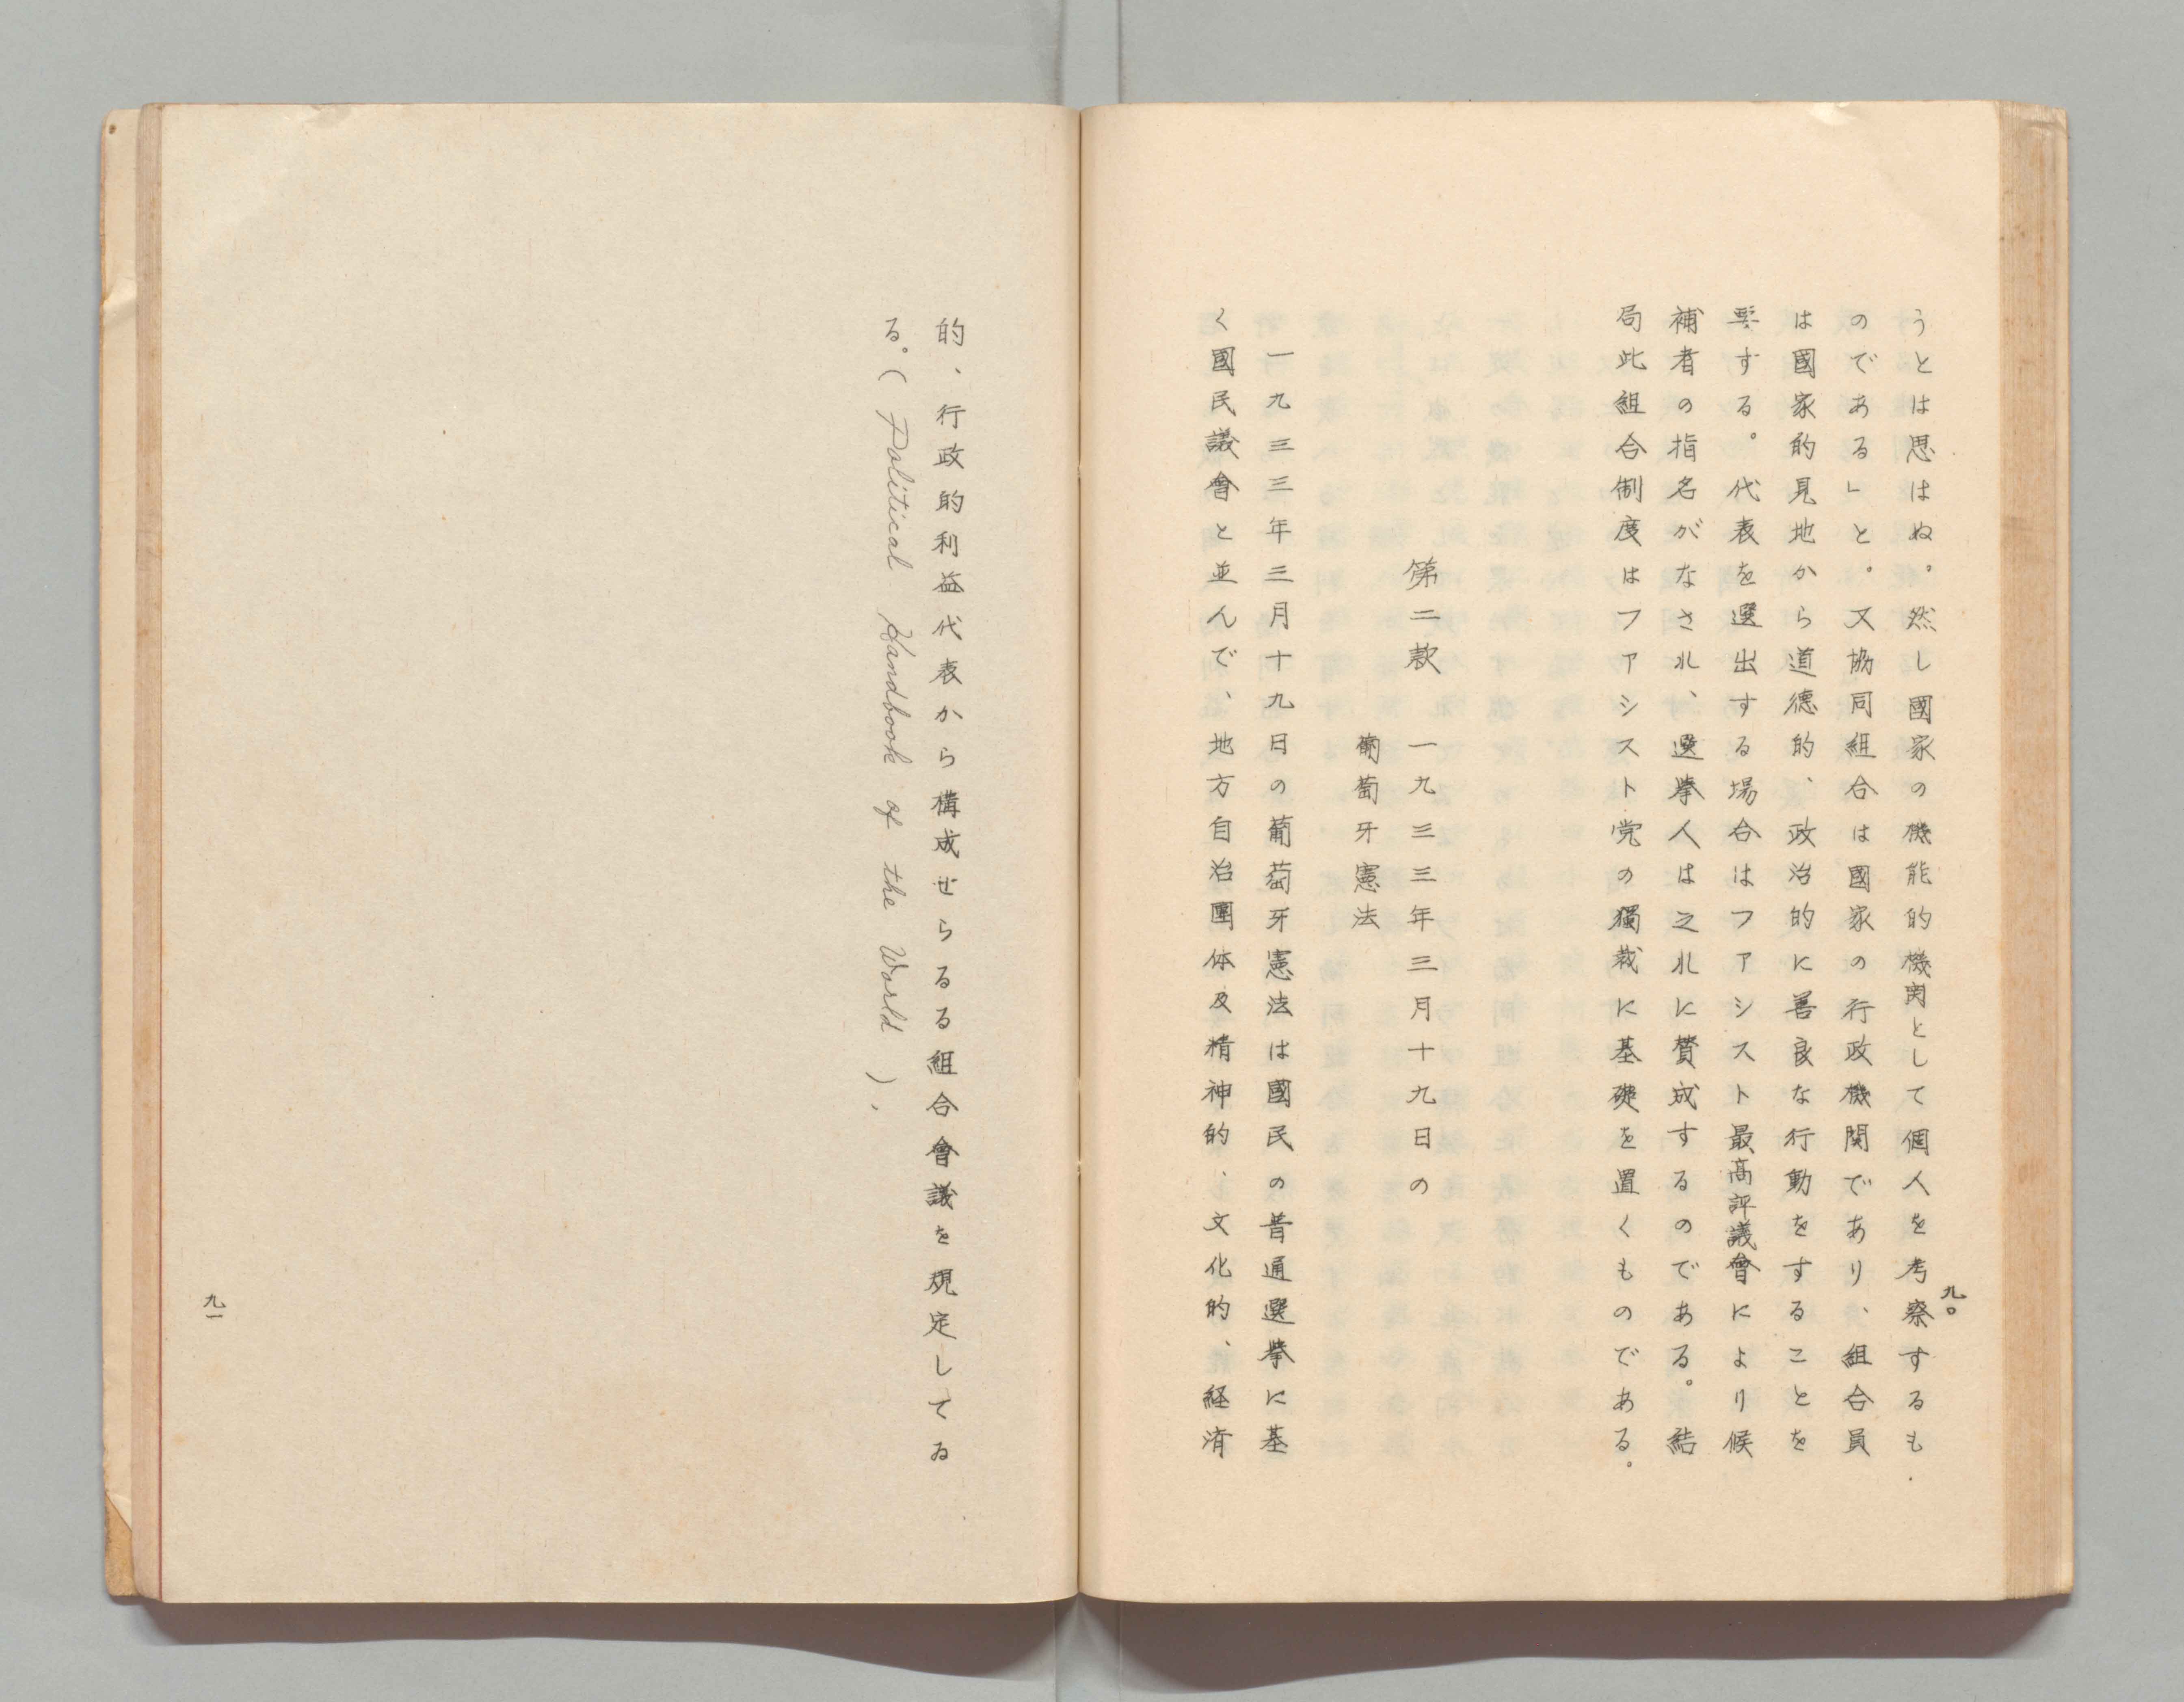 九〇
うとは思はぬ。然し國家の機能的機関として個人を考察するも
のである」と。又協同組合は國家の行政機関であり、組合員
は國家的見地から道德的、政治的に善良な行動をすることを
要する。代表を選出する場合はファシスト最高評議會により候
補者の指名がなされ、選挙人は之れに賛成するのである。結
局此組合制度はファシスト党の獨裁に基礎を置くものである。
第二款　一九三三年三月十九日の
葡萄牙憲法
一九三三年三月十九日の葡萄牙憲法は國民の普通選挙に基
く國民議會と並んで、地方自治團体及精神的、文化的、経済
的、行政的利益代表から構成せらるる組合會議を規定してゐ
る。(Political Handbook of the World)、
九一